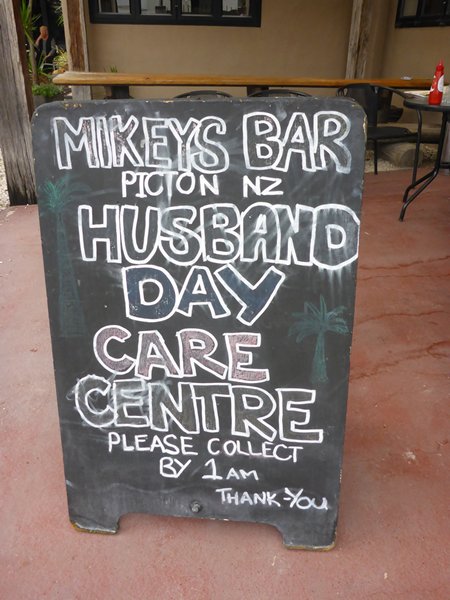 MIKEYS BAR
PICTON NZ
HUSBAND
DAY
CARE
CENTRE
PLEASE COLLECT
BY 1AM
THANK-YOU